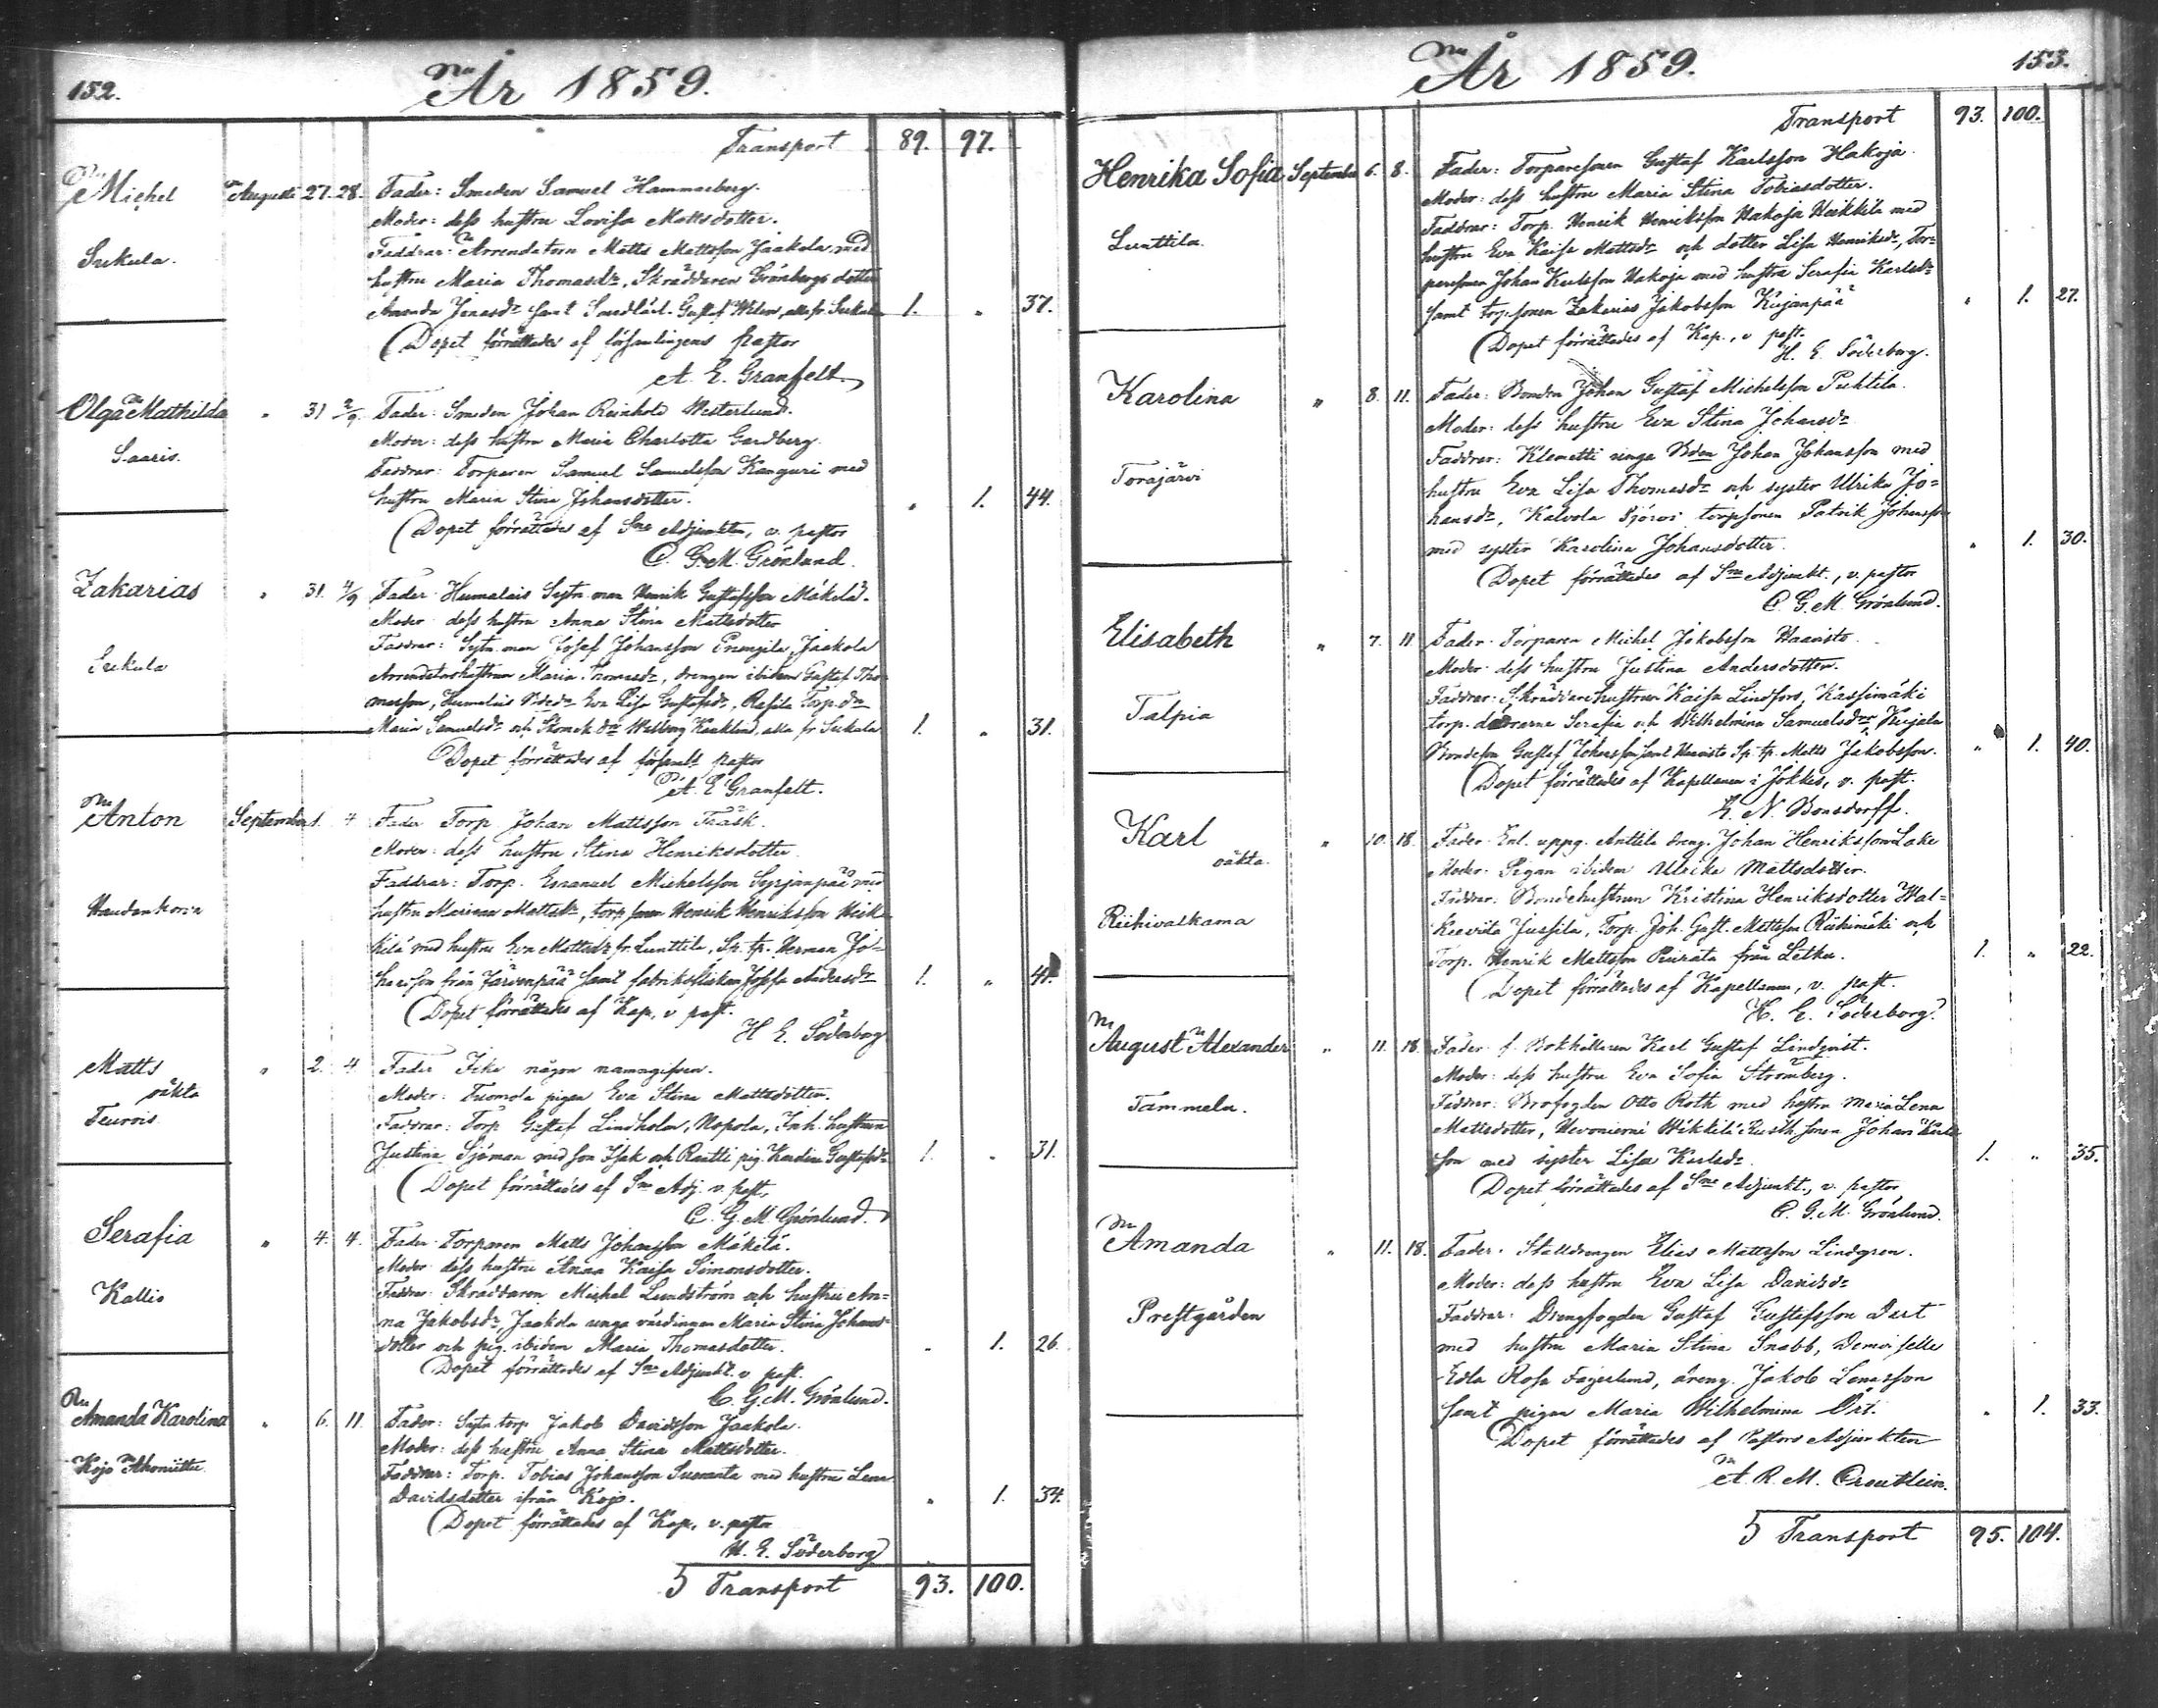 152.
År 1859.
Transport 89. 97.
Michel Augusti 27. 28. Fader: Smeden Samuel Hammarberg.
Moder: dess hustru Lovisa Mattsdotter.
Sukula. Faddrar: Arrendatorn Matts Mattsson Jaakola med
hustru Maria Thomasdr, Skräddaren Grönbergs dotter
Amanda samt Gustaf alla fr. Sukula 1. " 37.
(Dopet förrättades af församlingens pastor
A. E. Granfelt.
Olga Mathilda " 31 2/9. Fader: Smeden Johan Reinhold Westerlund.
Moder: dess hustru Maria Charlotta Gardberg.
Saaris. Faddrar: Torparen Samuel Samuelsson Kanguri med
hustru Maria Stina Johansdotter. " 1. 44.
(Dopet förrättades af Sne Adjunkten, v. pastor
C. G. M. Grönlund.
Zakarias " 31. 4/9 Fader: Humalais Sytn. man Henrik Gustafsson Mäkelä.
Moder: dess hustru Anna Stina Mattsdotter
Sukula Faddrar: Sytn. man Josef Johansson Jaakola
Arrendatorshustrun Maria Thomasdr, drengen ibidem Gustaf Tho-
masson, Humalais Eva Lisa Gustafsdr, Rasila Torp. dr
Maria Samuelsdr och Walborg alla fr Sukula 1. " 31.
Dopet förrättades af församls pastor
A. E Granfelt.
Anton September 1. 4 Fader Torp Johan Mattsson Träsk.
Moder: dess hustru Stina Henriksdotter
Faddrar: Torp. Emanuel Michelsson Syrjänpää med
Haudankorva hustru Mariana Mattsdr, torp. sonen Henrik Henriksson Heik-
kilä med hustru Eva Mattsdr fr. Lunttila, Sp. tp. Herman Jo-
hansson från Järvenpää samt fabriksflickan Josefa Andersdr 1. " 41.
(Dopet förrättades af Kap, v past.
H E. Söderborg
Matts " 2. 4 Fader Icke någon namngifven.
oäkta Moder: Tuomola pigan Eva Stina Mattsdotter.
Teurois Faddrar: Torp Gustaf Lindholm, Nopola, Inh. hustrun
Justina Sjöman med son Isak och Rautti pig. Karolina Gustafsdr 1. " 31.
(Dopet förrättades af Sne Adj. v. past,
C. G. M. Grönlund.
Serafia " 4. 4. Fader Torparen Matts Johansson Mäkilä.
Moder dess hustru Anna Kaisa Simonsdotter.
Kallio Faddrar: Skräddaren Michel Lundström och hustru An-
na Jakobsdr, Jaakola unga värdinnan Maria Stina Johans-
dotter och pig. ibidem Maria Thomasdotter. " 1. 26.
Dopet förrättades af Sne Adjunkt. v past.
C. G. M. Grönlund.
Amanda Karolina " 6. 11. Fader: Sytn. torp Jakob Davidsson Jaakola.
Moder: dess hustru Anna Stina Mattsdotter.
Kojo Faddrar: Torp. Tobias Johansson Suoranta med hustru Lena
Davidsdotter ifrån Kojo. " 1. 34.
(Dopet förrättades af Kap, v. pastor
H. E. Söderborg
5 Transport 93. 100.
153.
År 1859.
Transport 93. 100.
Henrika Sofia September 6. 8. Fader: Torparesonen Gustaf Karlsson Hakoja.
Moder: dess hustru Maria Stina Tobiasdotter.
Lunttila Faddrar: Torp. Henrik Henriksson Hakoja Heikkilä med
hustru Eva Kaisa Mattsdr och dotter Lisa Henriksdr, Tor-
paresonen Johan Karlsson Hakoja med hustru Serafia Karlsdr
samt torp. sonen Zakarias Jakobsson Kujanpää " 1. 27.
(Dopet förrättades af Kap., v past.
H. E. Söderborg.
Karolina " 8. 11. Fader: Bonden Johan Gustaf Michelsson Puhtila.
Moder: dess hustru Eva Stina Johansdr
Torajärvi Faddrar: Klemetti unga Bden Johan Johansson med
hustru Eva Lisa Thomasdr och syster Ulrika Jo-
hansdr, Kalvola torpsonen Patrik Johansson
med syster Karolina Johansdotter. " 1. 30.
(Dopet förrättades af Sne Adjunkt., v. pastor
C. G. M. Grönlund.
Elisabeth " 7. 11 Fader: Torparen Michel Jakobsson Haavisto.
Moder: dess hustru Justina Andersdotter.
Talpia Faddrar: Skräddarehustrun Kaisa Lindfors, Kassimäki
torp. döttrarne Serafia och Wilhelmina Samuelsdr, Kujala
Bondeson Gustaf Johansson samt Haavisto Sp. tp. Matts Jakobsson. " 1. 40.
(Dopet förrättades af Kapellanen i Jokkis, v. past.
K. N. Bonsdorff.
Karl " 10. 18. Fader: Enl. uppg. Anttila dreng. Johan Henriksson Lake
oäkta. Moder: Pigan ibidem Ulrika Mattsdotter.
Riihivalkama Faddrar: Bondehustrun Kristina Henriksdotter Wal-
Jussila, Torp. Joh. Gust. Mattsson Riihimäki och
Torp. Henrik Mattsson från Letku. 1. " 22.
(Dopet förrättades af Kapellanen, v. past.
H. E. Söderborg.
August Alexander " 11. 18. Fader: f. Bokhållaren Karl Gustaf Lindqvist.
Moder: dess hustru Eva Sofia Strömberg.
Tammela. Faddrar: Brofogden Otto Roth med hustru Maria Lena
Mattsdotter, Heikkilä Rusth. sonen Johan Karls-
son med syster Lisa Karlsdr. 1. " 35.
Dopet förrättades af Sne Adjunkt., v. pastor
C. G. M. Grönlund.
Amanda " 11. 18. Fader: Stalldrengen Elias Mattsson Lindgren.
Moder: dess hustru Eva Lisa Davidsdr
Prestgården Faddrar: Drengfogden Gustaf Gustafsson Dart
med hustru Maria Stina Snabb, Demoiselle
Edla Rosa Fagerlund, dreng. Jakob Lenasson
samt pigan Maria Wilhelmina Ört. " 1. 33.
Dopet förrättades af Pastors Adjunkten
A. R. M. Creutlein.
5 Transport 95. 104.